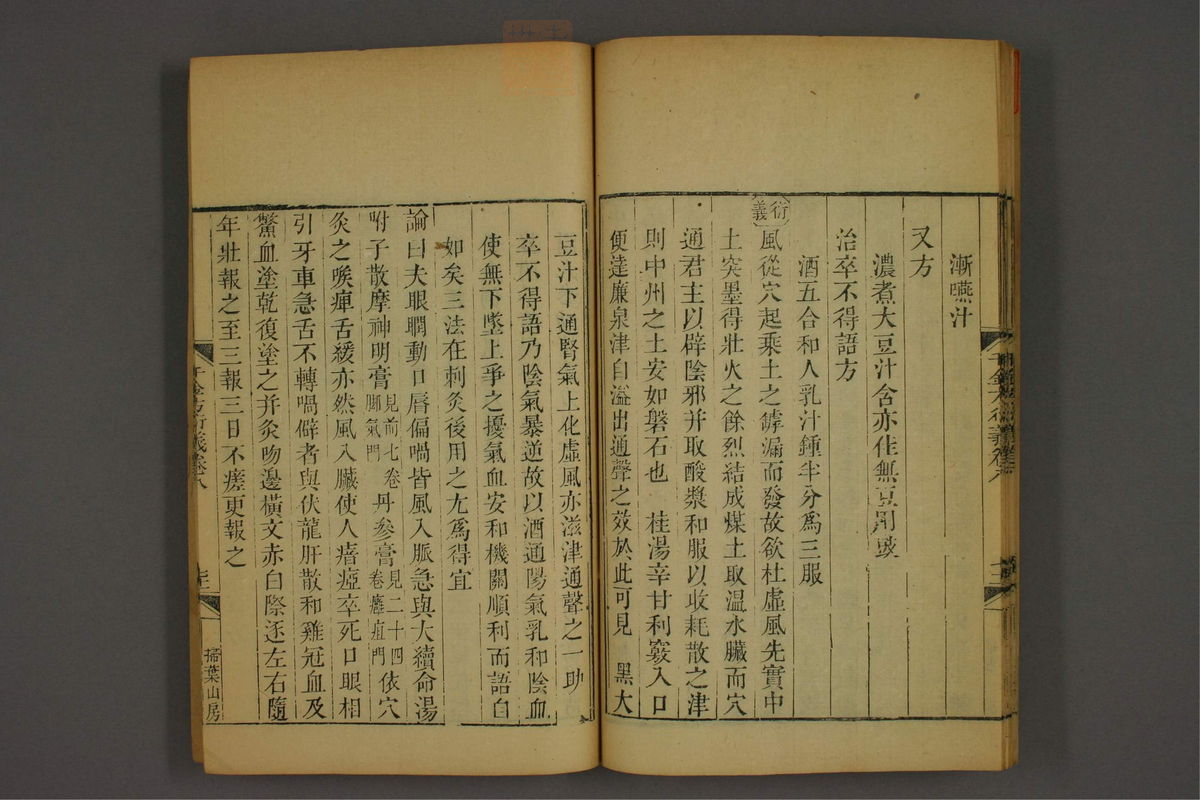 漸嚥汁
又方
濃煮大豆汁含亦佳無豆用豉
治卒不得語方
酒五合和人乳汁鍾半分爲三服
衍義 風從穴起乘土之罅漏而發故欲杜虛風先實中
土突墨得壯火之餘烈結成煤土取溫水臟而穴
通君主以辟陰邪并取酸漿和服以收耗散之津
則中州之土安如磐石也 桂湯辛甘利竅入口
便達廉泉津自溢出通聲之效於此可見 黑大
豆汁下通腎氣上化虛風亦滋津通聲之一助
卒不得語乃陰氣暴逆故以酒通陽氣乳和陰血
使無下墜上爭之擾氣血安和機關順利而語自
如矣三法在刺灸後用之尤爲得宜
論曰夫眼瞤動口唇偏喎皆風入脈急與大續命湯
附子散摩神明膏見前七卷腳氣門丹參膏見二十四卷癰疽門依穴
灸之喉痺舌緩亦然風入臟使人瘖瘂卒死口眼相
引牙車急舌不轉喎僻者與伏龍肝散和雞冠血及
鱉血塗乾復塗之并灸吻邊橫文赤白際逐左右隨
年壯報之至三報三日不瘥更報之
千金方衍義卷八
掃葉山房